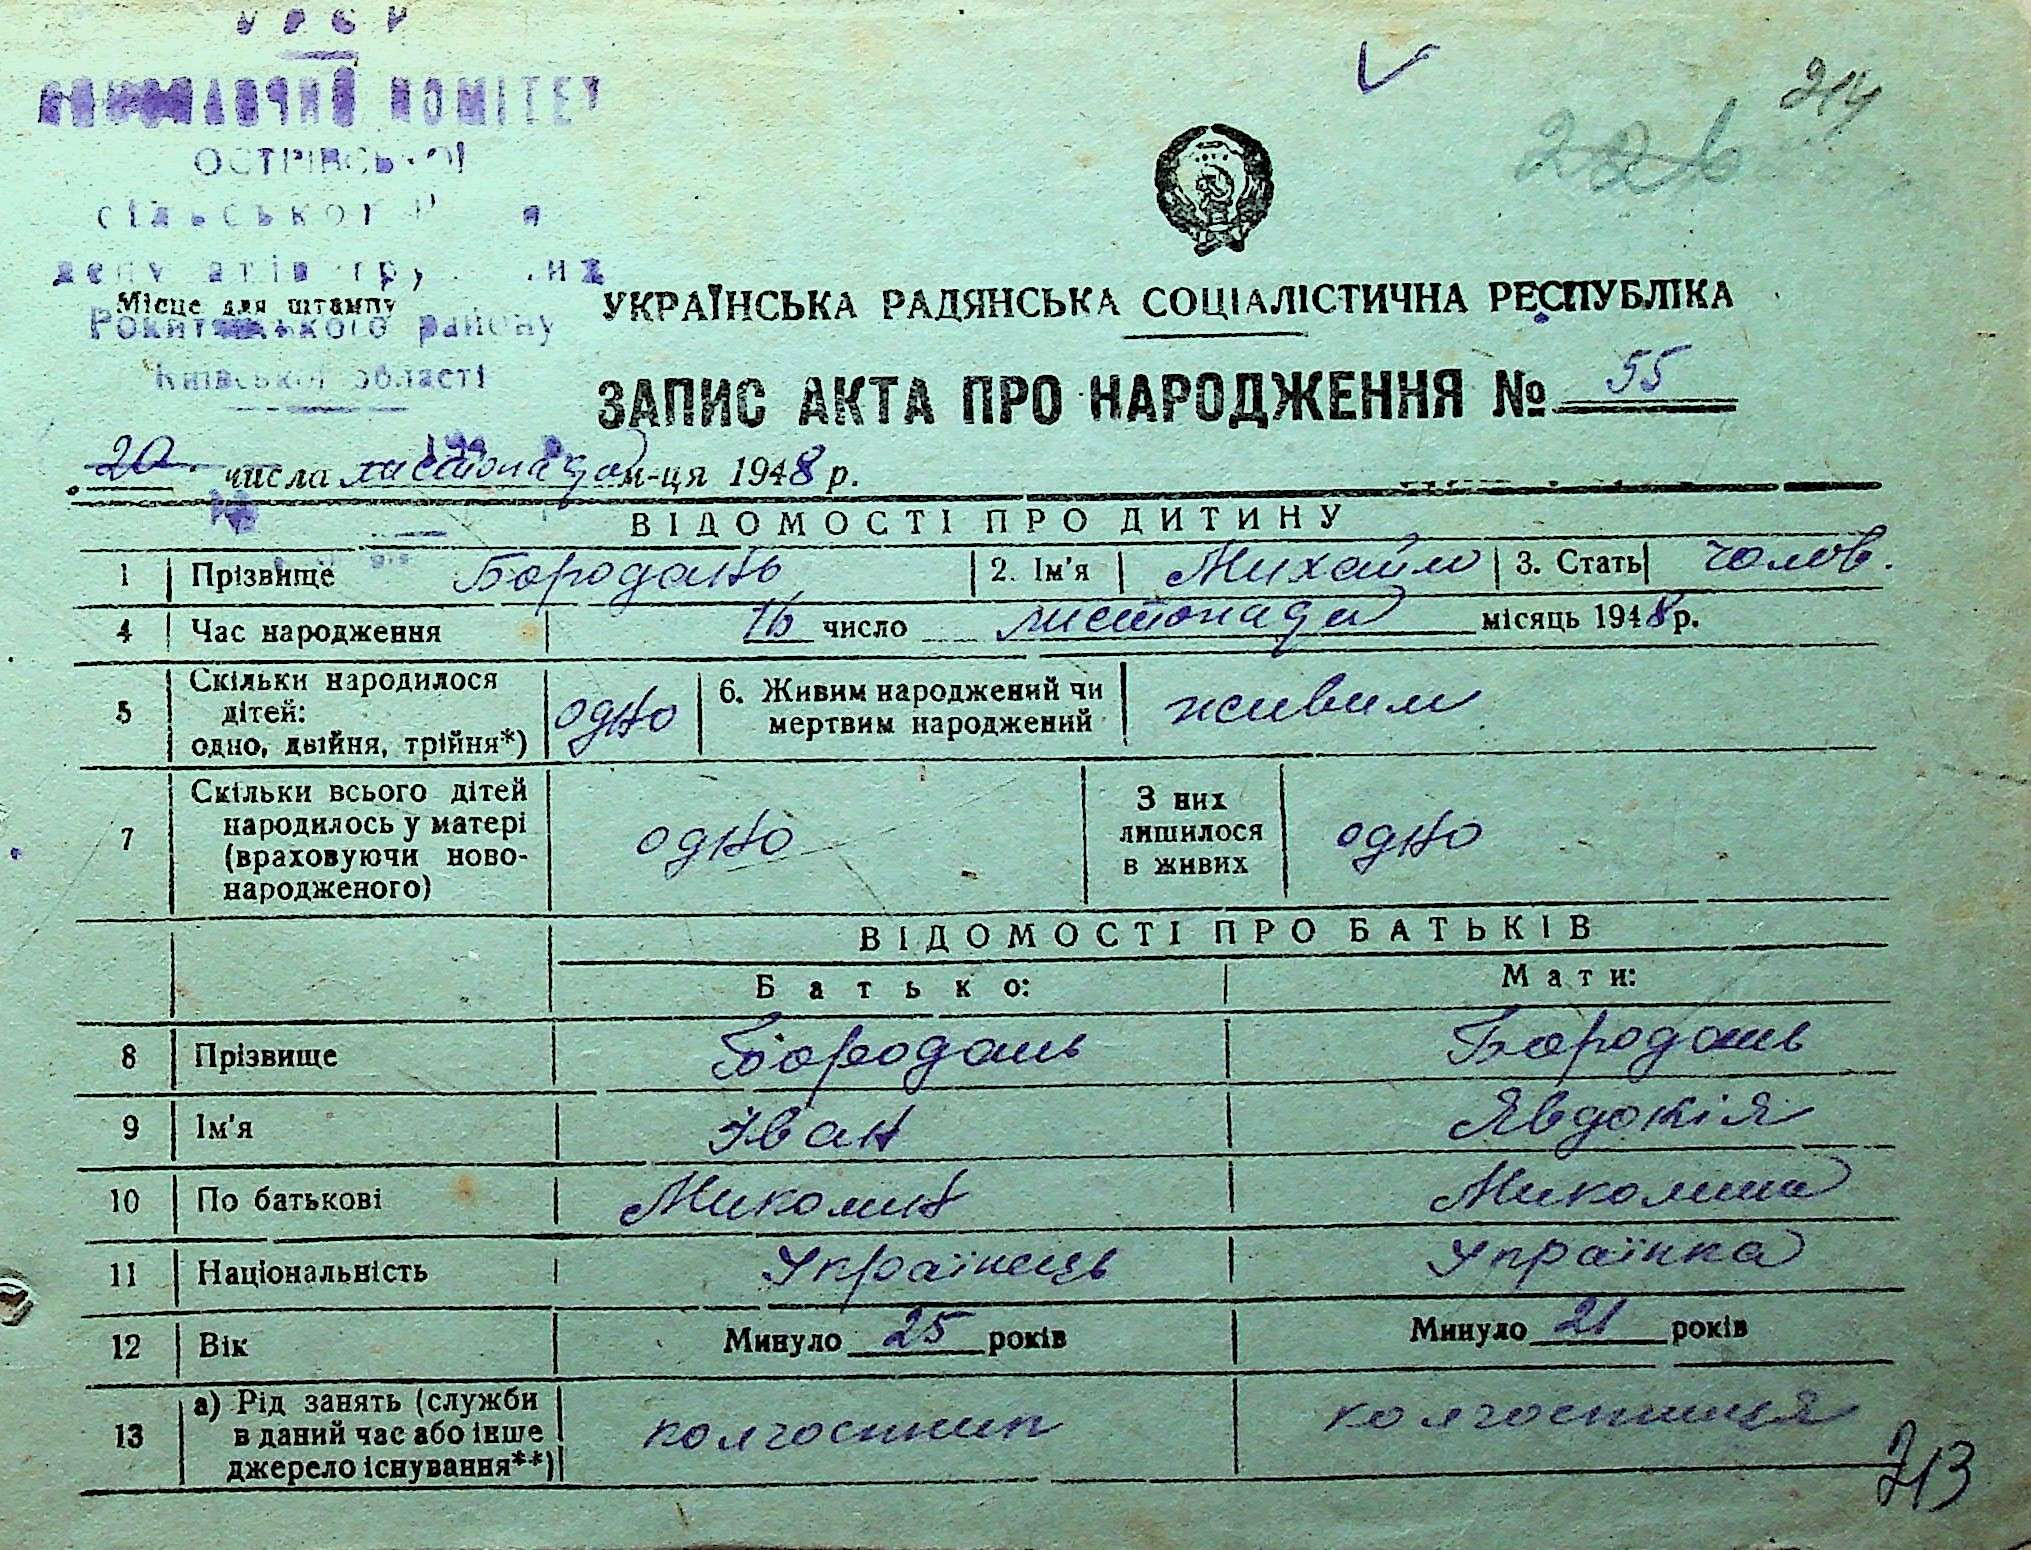 УРСР
ВИКОНАВЧИЙ КОМІТЕТ
ОСТРІВСЬКОЇ
сільської Ради
депутатів трудящих
Рокитнянського району
Київської області
Місце для штампу
214
226
УКРАЇНСЬКА РАДЯНСЬКА СОЦІАЛІСТИЧНА РЕСПУБЛІКА
ЗАПИС АКТА ПРО НАРОДЖЕННЯ № 55
20 числа листопада м-ця 1948 р.
ВІДОМОСТІ ПРО ДИТИНУ
1 Прізвище Бородань 2. Ім'я Михайло 3. Стать чолов.
4 Час народження 16 число листопада місяць 1948 р.
5 Скільки народилося дітей: одно, двійня, трійня*) одно 6. Живим народжений чи мертвим народжений живим
7 Скільки всього дітей народилось у матері (враховуючи ново-народженого) одно З них лишилося в живих одно
ВІДОМОСТІ ПРО БАТЬКІВ
Батько: Мати:
8 Прізвище Бородань Бородань
9 Ім'я Іван Явдокія
10 По батькові Миколин Миколина
11 Національність Українець Українка
12 Вік Минуло 25 років Минуло 21 років
13 а) Рід занять (служби в даний час або інше джерело існування**) колгоспник колгоспниця
213